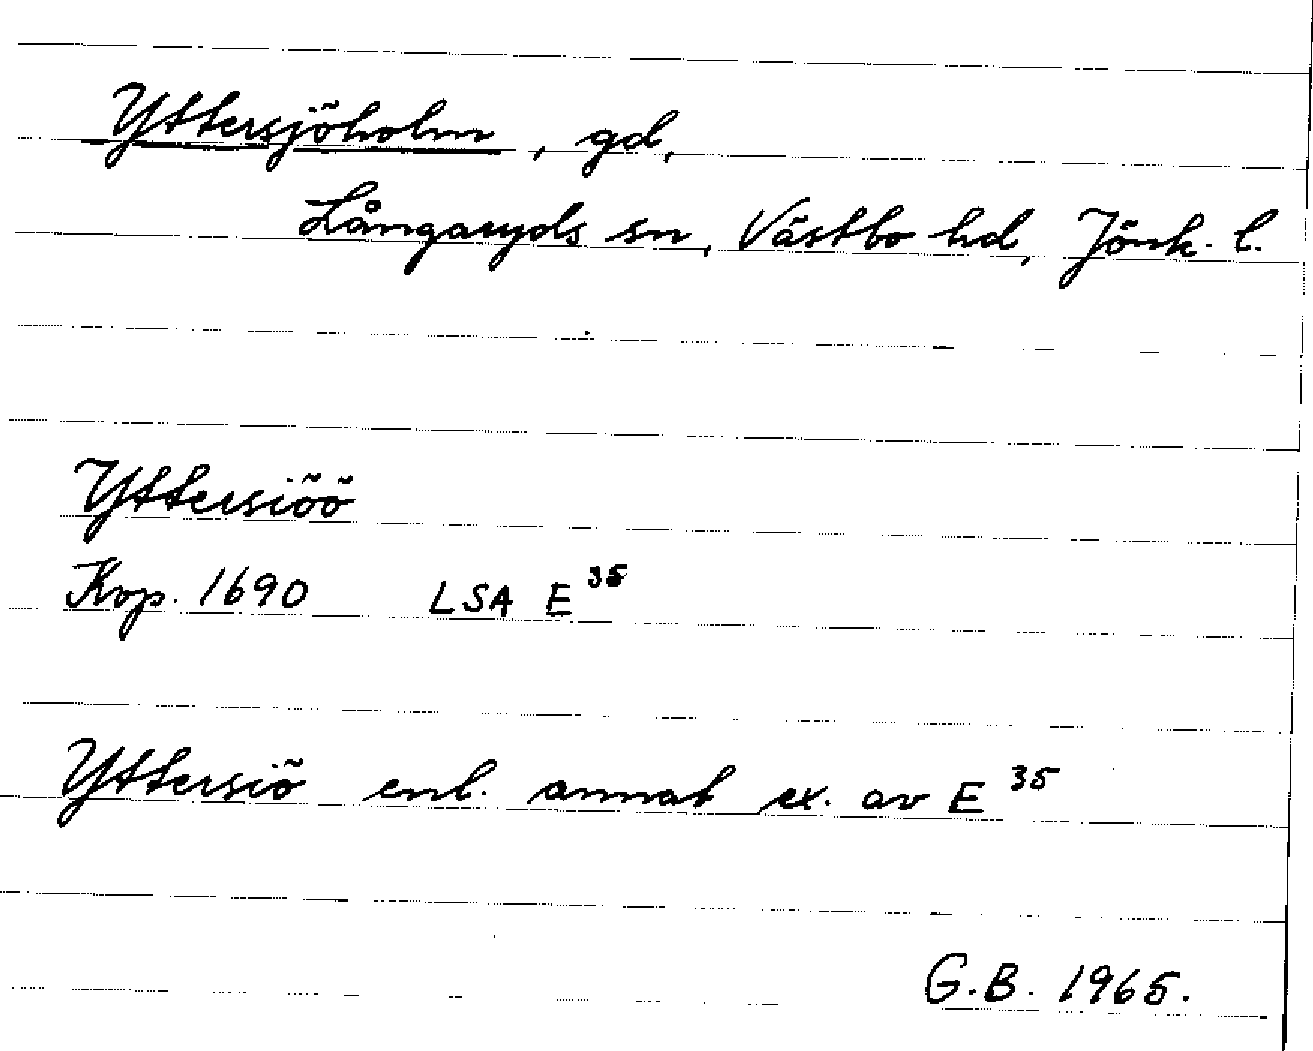 Yttersjöholm, gd,
Långaryds sn, Västbo hd, Jönk. l.
Yttersiöö
Kop. 1690 LSA E 35
Yttersiö enl. annat ex. av E 35
G.B. 1965.